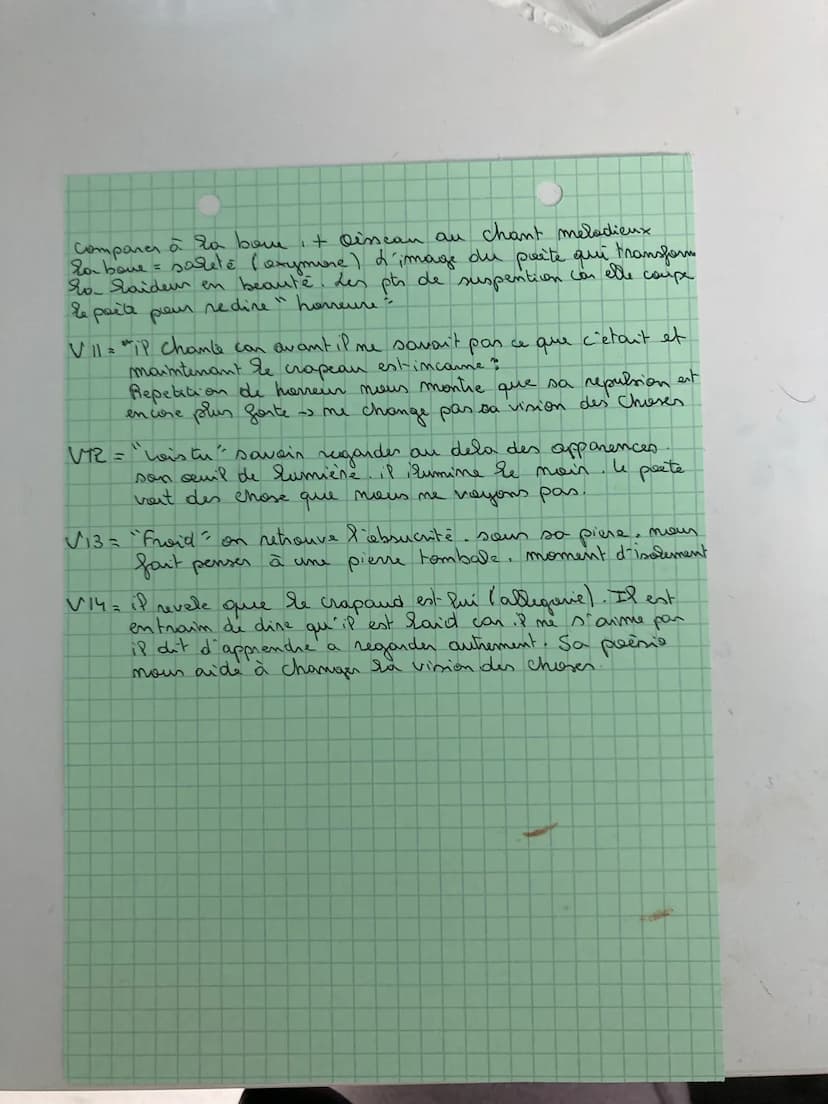 comparer à la boue, + Oisseau au chant melodieux
la boue = saleté (oxymore) L'image du poète qui transform
la laideur en beauté. Les pts de suspention car elle coupe
le poète pour redire "horreure"
V11 = "il chante car avant il ne savait pas ce que c'était et
maintenant le crapeau est incarne"
Repetition de horreur nous montre que sa repulsion est
encore plus forte → ne change pas sa vision des choses
V12 = "Vois tu" savoir regarder au dela des apparences.
son oeuil de lumière. il ilumine le noir. le poète
voit des chose que nous ne voyons pas.
V13 = "Froid" on retrouve l'obsucrité. sous sa piere, nous
fait penser à une pierre tombale, moment d'isolement
V14 = il revele que le crapaud est lui (allegorie). Il est
entraim de dire qu'il est laid car il ne s'aime pas
il dit d'apprendre a regarder autrement. Sa poèsie
nous aide à changer la vision des choses.